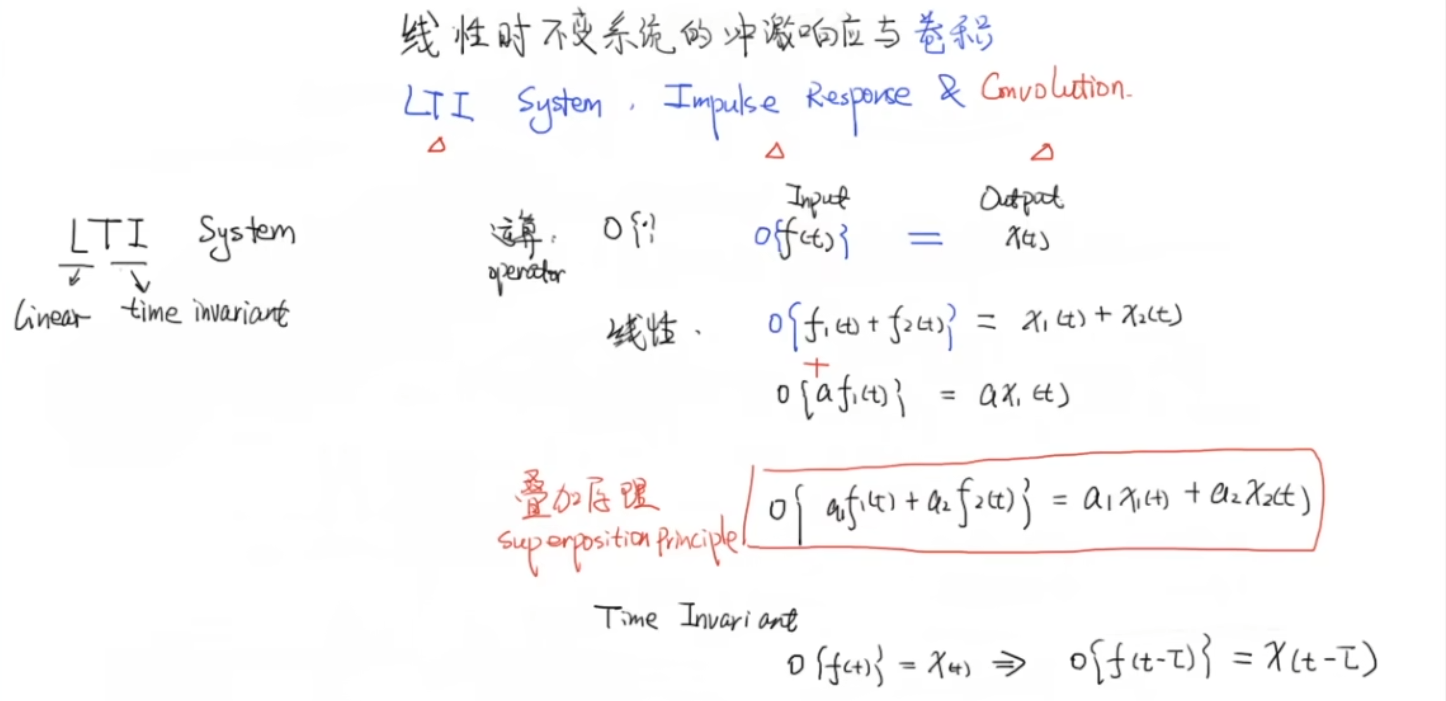 线性时不变系统的冲激响应与卷积
LTI System . Impulse Response & Convolution.
LTI System
linear time invariant
运算. O{·}
operator
Input Output
O{f(t)} = x(t)
线性. O{f₁(t) + f₂(t)} = x₁(t) + x₂(t)
+
O{af₁(t)} = ax₁(t)
叠加原理
superposition principle
O{a₁f₁(t) + a₂f₂(t)} = a₁x₁(t) + a₂x₂(t)
Time Invariant
O{f(t)} = x(t) ⇒ O{f(t-τ)} = x(t-τ)